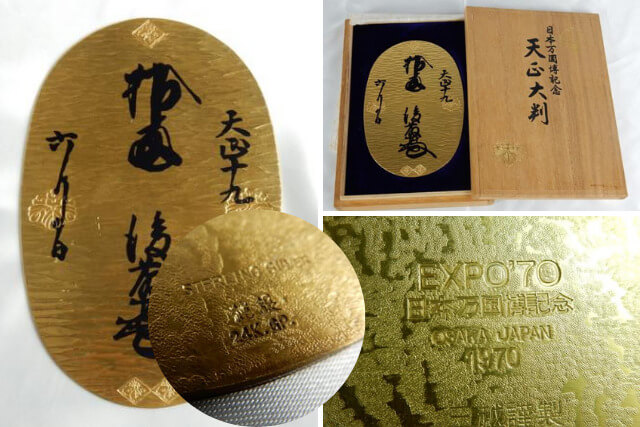 天正十九
拾両後藤
六月日
STERLING SILVER
純銀
24K.GP.
天正十九
拾両後藤
日本万国博記念
天正大判
EXPO'70
日本万国博記念
OSAKA, JAPAN
1970
謹製